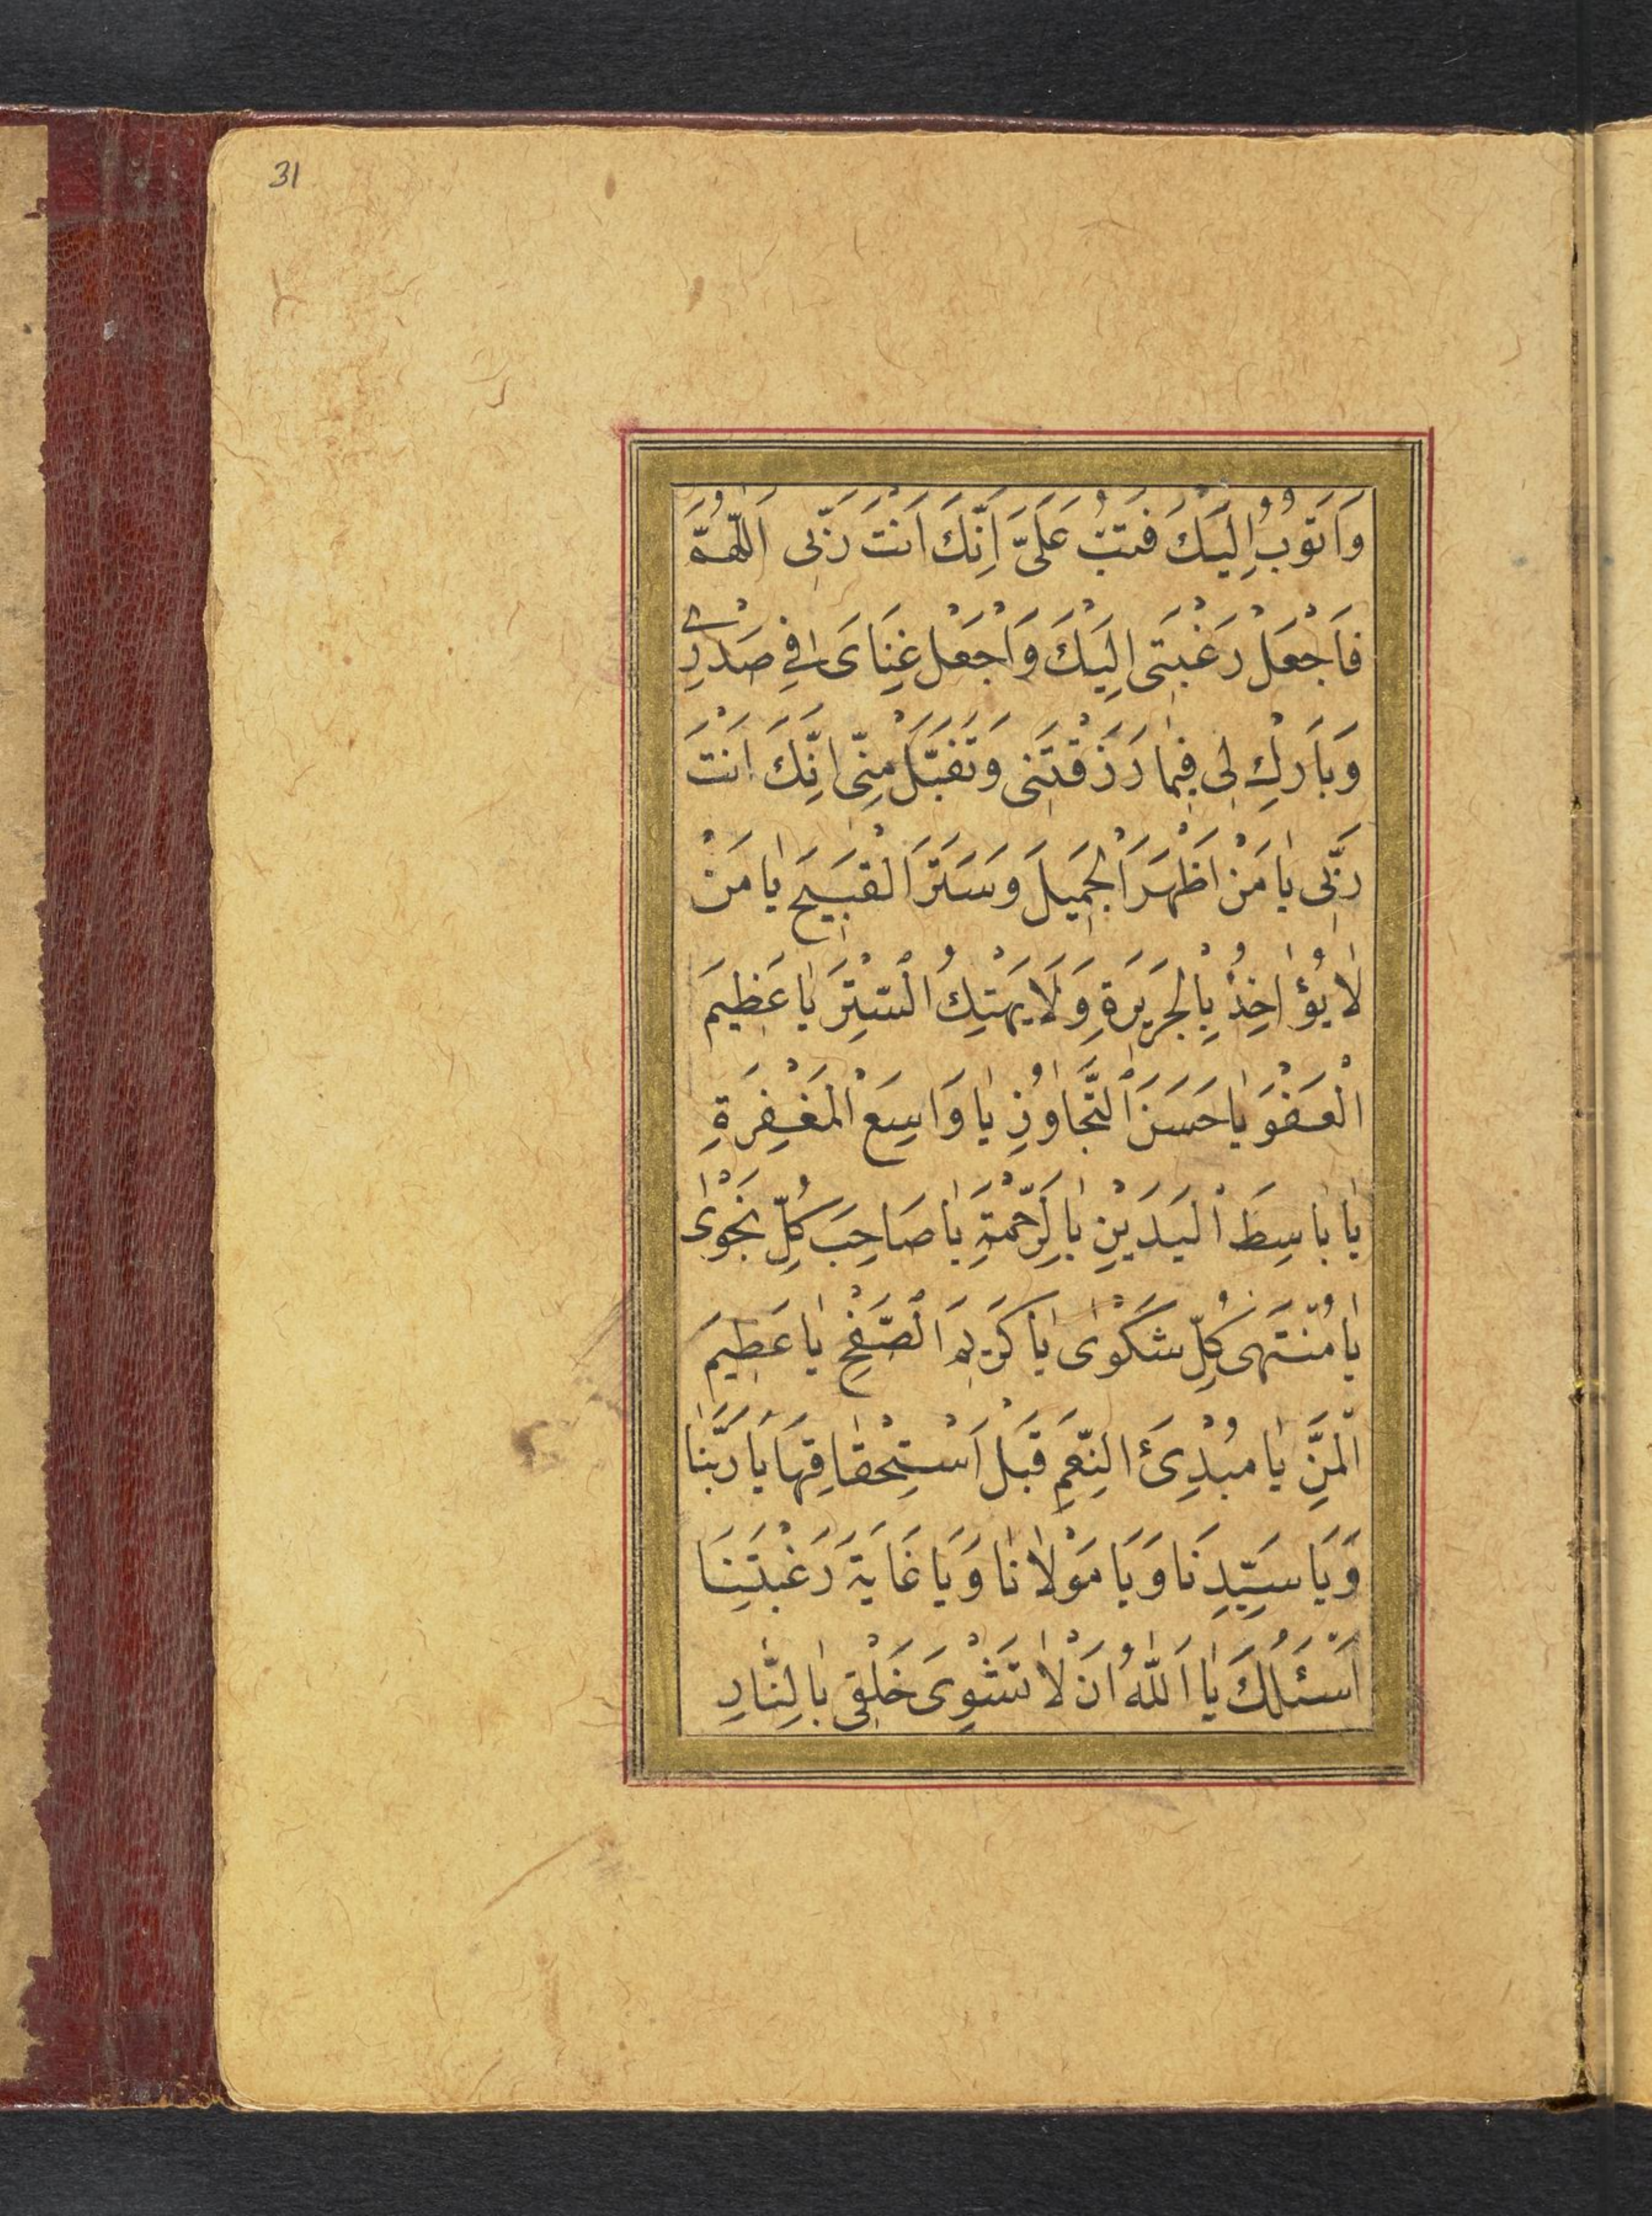 31
وَاَتُوبُ اِلَيْكَ فَتُبْ عَلَىَّ اِنَّكَ اَنْتَ رَبّى اَللّٰهُمَّ
فَاجْعَلْ رَغْبَتى اِلَيْكَ وَاجْعَلْ غِنَاىَ فِي صَدْرِي
وَبَارِكْ لِى فِيمٰا رَزَقْتَنِى وَتَقَبَّلْ مِنّى اِنَّكَ اَنْتَ
رَبّى يٰا مَنْ اَظْهَرَ الْجَمِيلَ وَسَتَرَ الْقَبِيحَ يٰا مَنْ
لٰا يُؤٰاخِذُ بِالْجَرِيرَةِ وَلَا يَهْتِكُ الْسِتْرَ يٰا عَظِيمَ
الْعَفْوِ يٰا حَسَنَ الْتَّجٰاوُزِ يٰا وَاسِعَ الْمَغْفِرَةِ
يٰا بٰاسِطَ الْيَدَيْنِ بِالرَّحْمَةِ يٰا صَاحِبَ كُلِّ نَجْوٰى
يٰا مُنْتَهى كُلِّ شَكْوٰى يٰا كَرِيمَ الْصَّفْحِ يٰا عَظِيمَ
الْمَنِّ يٰا مُبْدِئَ النِّعَمِ قَبْلَ اسْتِحْقٰاقِهَا يٰا رَبَّنٰا
وَيَا سَيِّدِنَا وَيَا مَوْلٰانٰا وَيَا غَايَةَ رَغْبَتِنَا
اَسْئَلُكَ يٰا اَللّٰهُ اَنْ لٰا تَشْوِىَ خَلْقِى بِالنّٰارِ